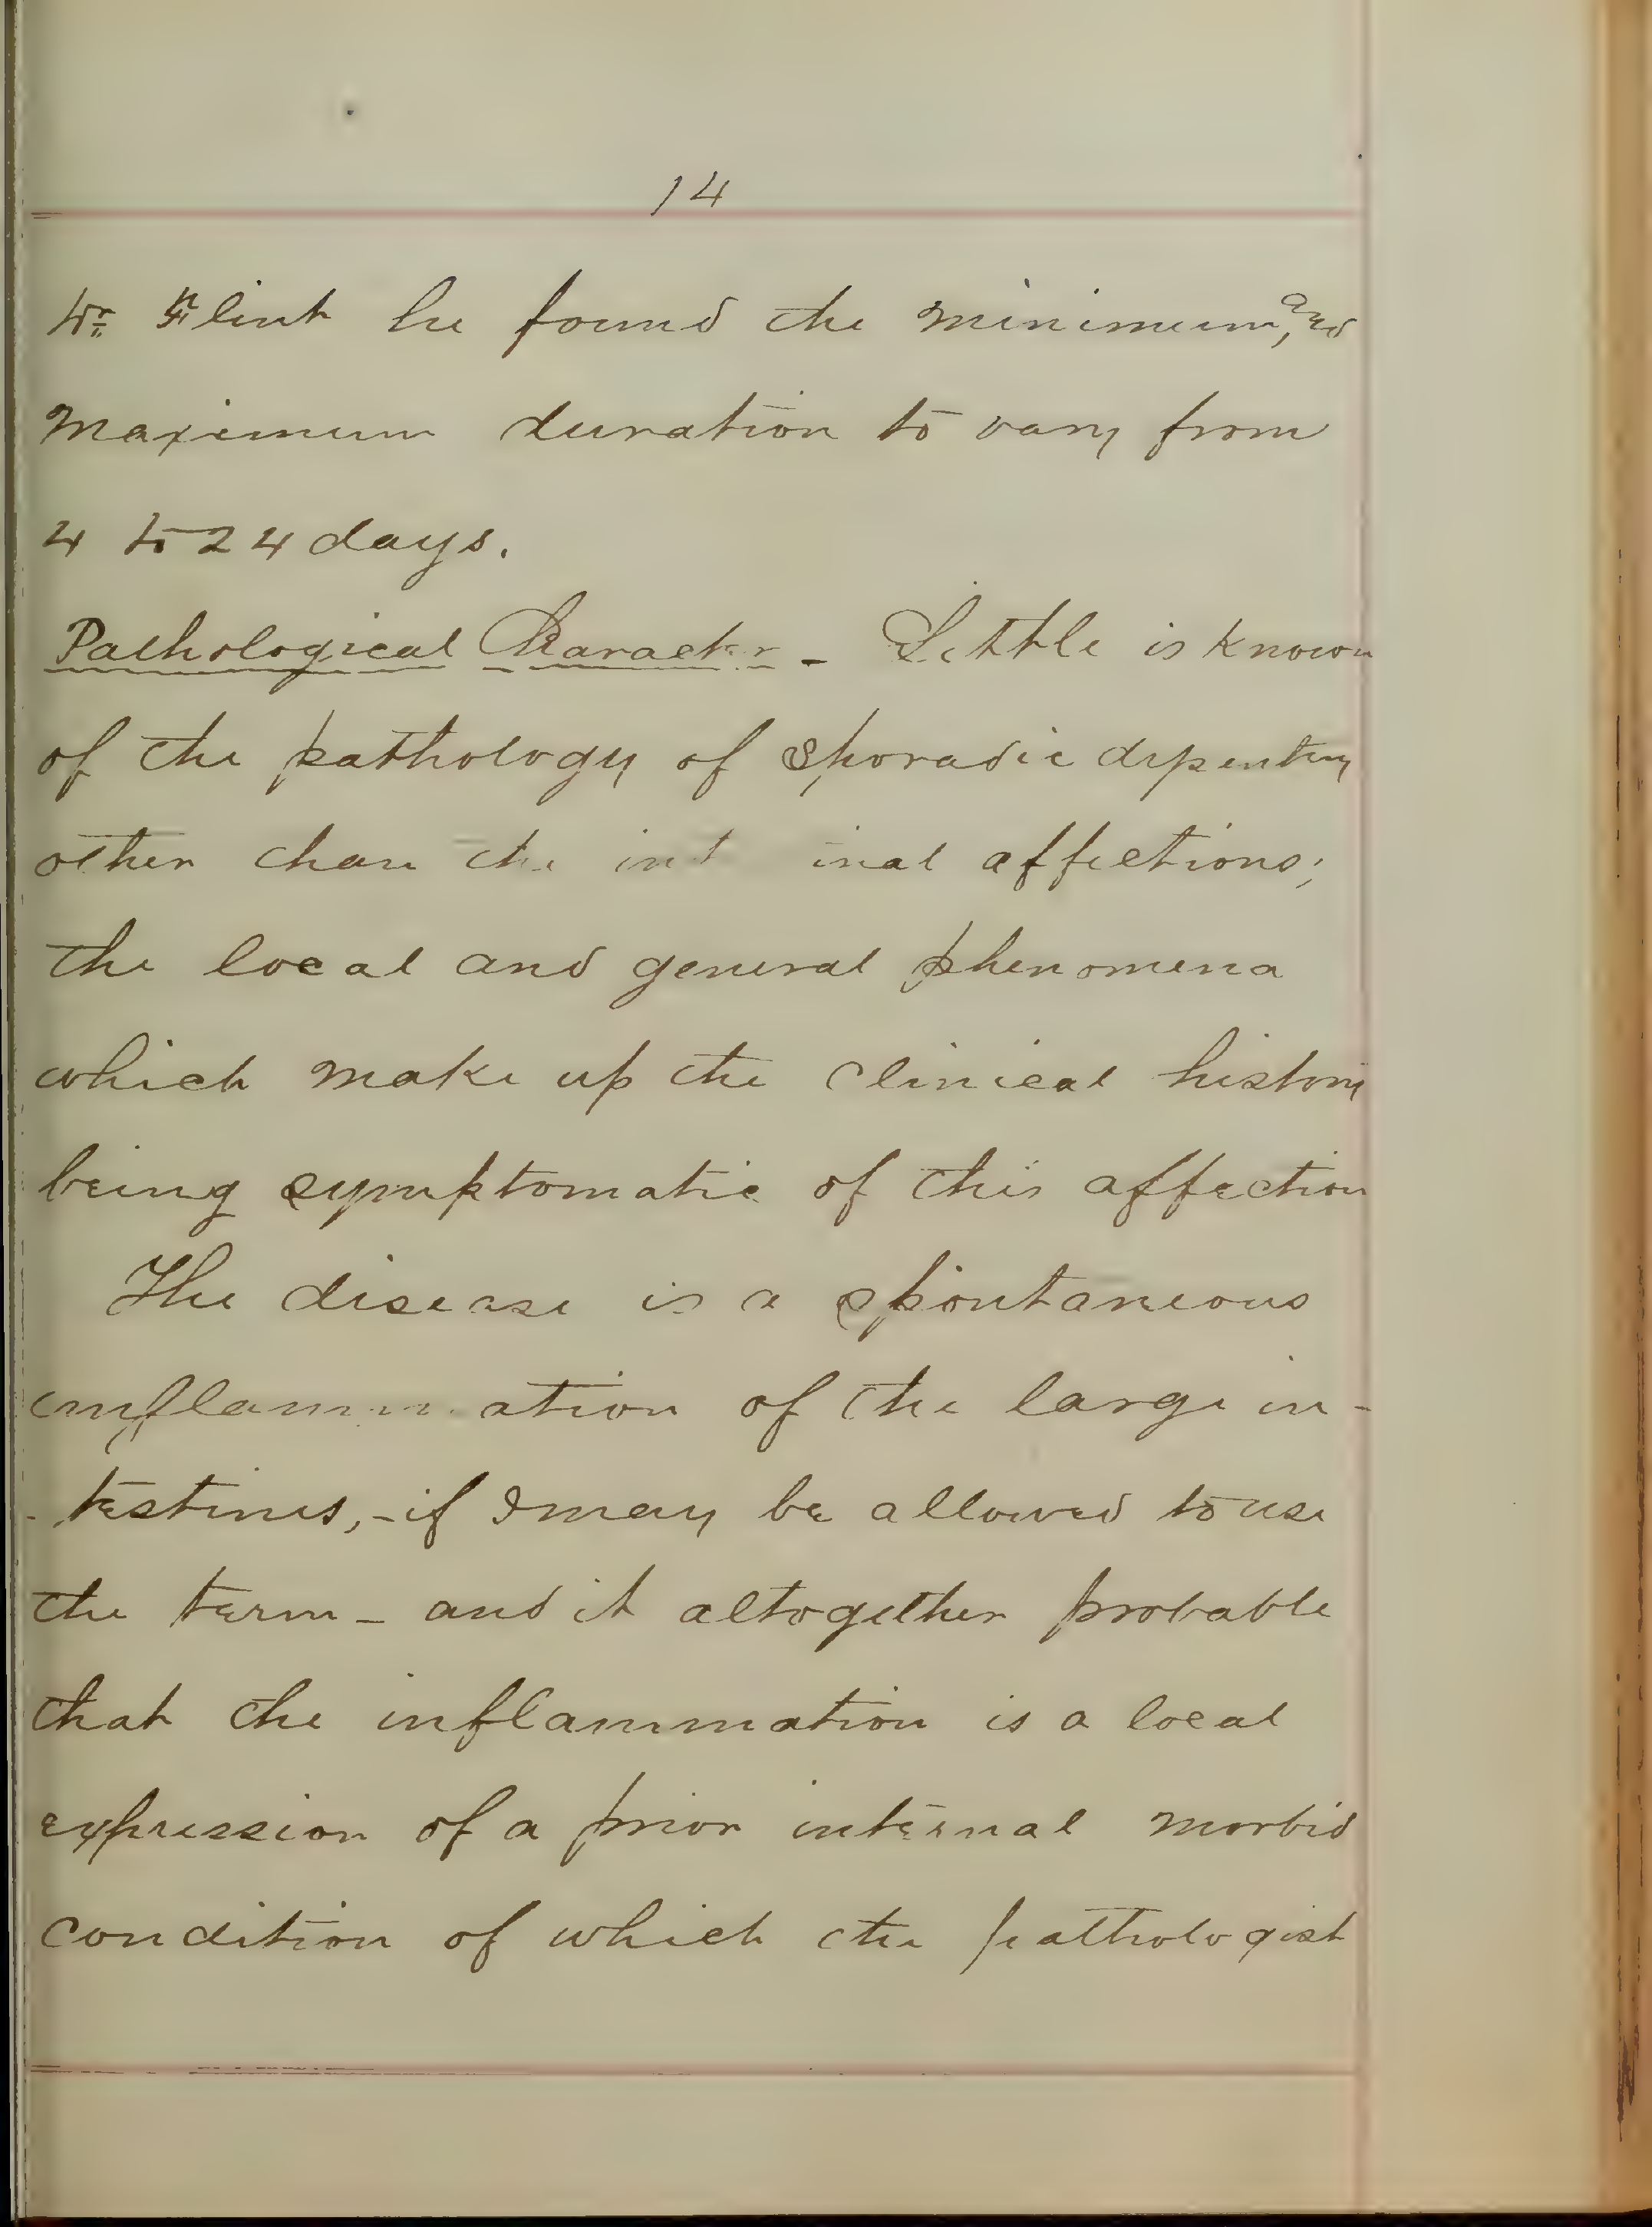 14
Dr Flint he found the minimum, and
maximum duration to vary from
4 to 24 days.
Pathological Character - Little is known
of the pathology of sporadic dysentery
other than the intestinal affections;
the local and general phenomena
which make up the clinical history
being symptomatic of this affection
The disease is a spontaneous
inflammation of the large in-
-testines, - if I may be allowed to use
the term - and it altogether probable
that the inflammation is a local
expression of a prior internal morbid
condition of which the pathologist